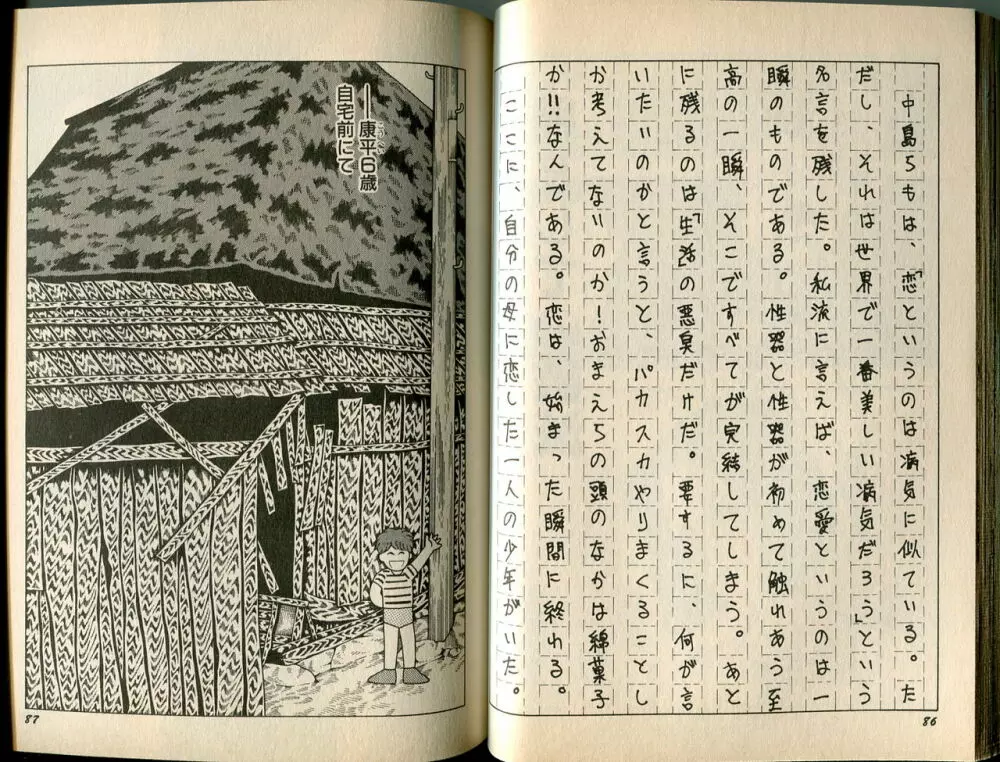 中島らもは、「恋というのは病気に似ている。た
だし、それは世界で一番美しい病気だろう」という
名言を残した。私流に言えば、恋愛というのは一
瞬のものである。性器と性器が初めて触れあう至
高の一瞬、そこですべてが完結してしまう。あと
に残るのは「生活の悪臭だけだ。要するに、何が言
いたいのかと言うと、パカスカやりまくることし
か考えてないのか!おまえらの頭のなかは綿菓子
か!!なんである。恋は、始まった瞬間に終わる。
ここに、自分の母に恋した一人の少年がいた。
86
──康平6歳
こうへい
自宅前にて
87